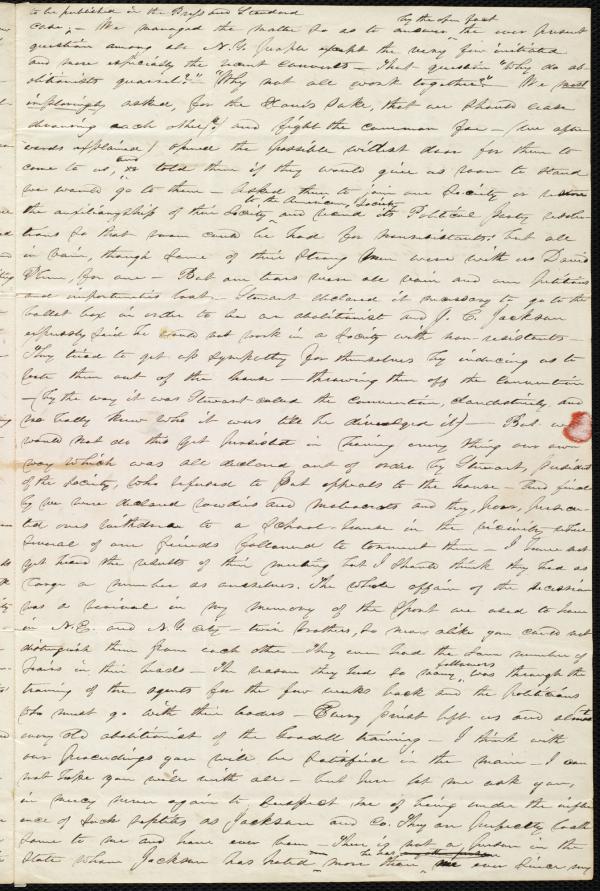 to be published in the Press and Standard
case. – We managed the matter so as to answer by the open fact the ever present
question among all N.Y. people except the very few initiated
and more especially the recent converts – That question "Why do ab-
olitionists quarrel?" "Why not all work together?" – We most
imploringly asked, for the slave's sake, that we should cease
devouring each other, and fight the common foe – (we after-
wards explained) opened the possible widest door for them to
come to us, and told them if they would give us room to stand
we would go to them – asked them to join our Society or restore
the auxiliaryship of their Society to the American Society and rescind its Political party resolu-
tions so that room could be had for nonresistants: but all
in vain, though some of their strong men were with us David
Plumb, for one – But our tears were all vain and our petitions
and importunities lost – Stewart declared it necessary to go to the
ballot box in order to be an abolitionist and J. C. Jackson
expressly said he would not work in a Society with non-resistants –
They tried to get up sympathy for themselves by inducing us to
vote them out of the house – throwing them off the Convention
– (by the way it was Stewart called the Convention, clandestinely and
no body knew who it was till he divulged it) – But we
would not do this yet persisted in having every thing our own
way which was all declared out of order by Stewart, President
of the Society, who refused to put appeals to the house – and final
ly we were declared rowdies and mobocrats and they, poor, persecu-
ted ones withdrew to a School-house in the vicinity where
several of our friends followed to torment them – I have not
yet heard the results of their meeting but I should think they had as
large a number as ourselves. The whole affair of the secession
was a revival in my memory of the sport we used to have
in N.E. and N.Y. city – twin brothers, so near alike you could not
distinguish them from each other – They even had the same number of
hairs in their heads – The reason they had so many followers was through the
training of the agents for the few weeks back and the politicians
who must go with their leaders – Every priest left us and almost
every old abolitionist of the Goodell training – I think with
our proceedings you will be satisfied in the main – I can
not hope you will with all – but here let me ask you,
in mercy never again to suspect me of being under the influ-
ence of such as Jackson and Co. They are perfectly loath
some to me and have ever been – There is not a person in the
state whom Jackson has hated more than he has me ever since my